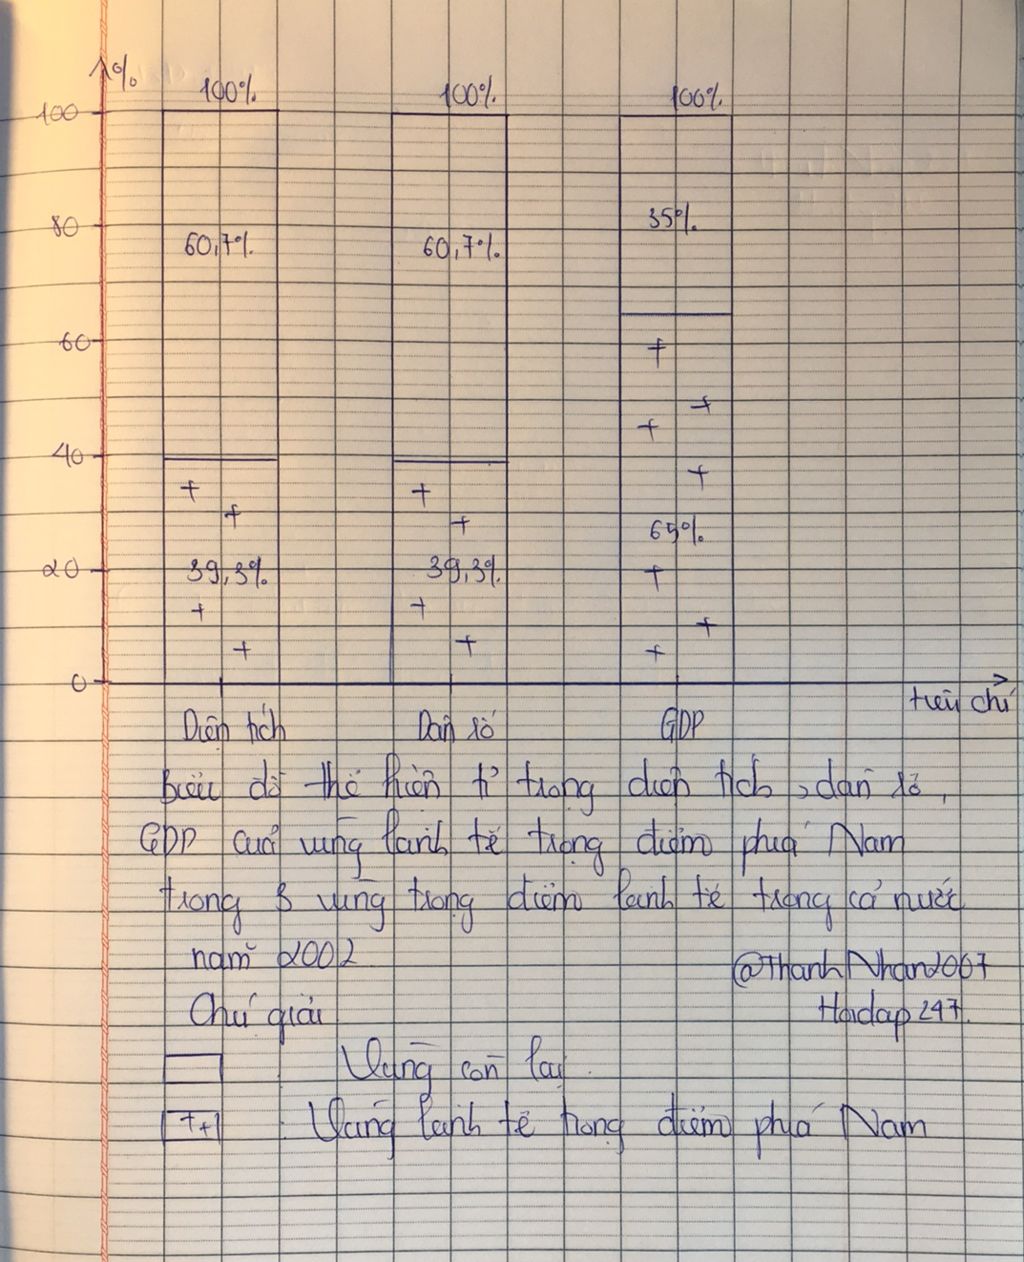 %
100% 100% 100%
100
35%
80
60,7% 60,7%
60
40
65%
20 39,3% 39,3%
0
tiêu chí
Diện tích Dân số GDP
Biểu đồ thể hiện tỉ trọng diện tích, dân số,
GDP của vùng kinh tế trọng điểm phía Nam
trong 3 vùng trọng điểm kinh tế trong cả nước
năm 2002
@ThanhNhan2007
Chú giải Hoidap247.
Vùng còn lại.
Vùng kinh tế trọng điểm phía Nam